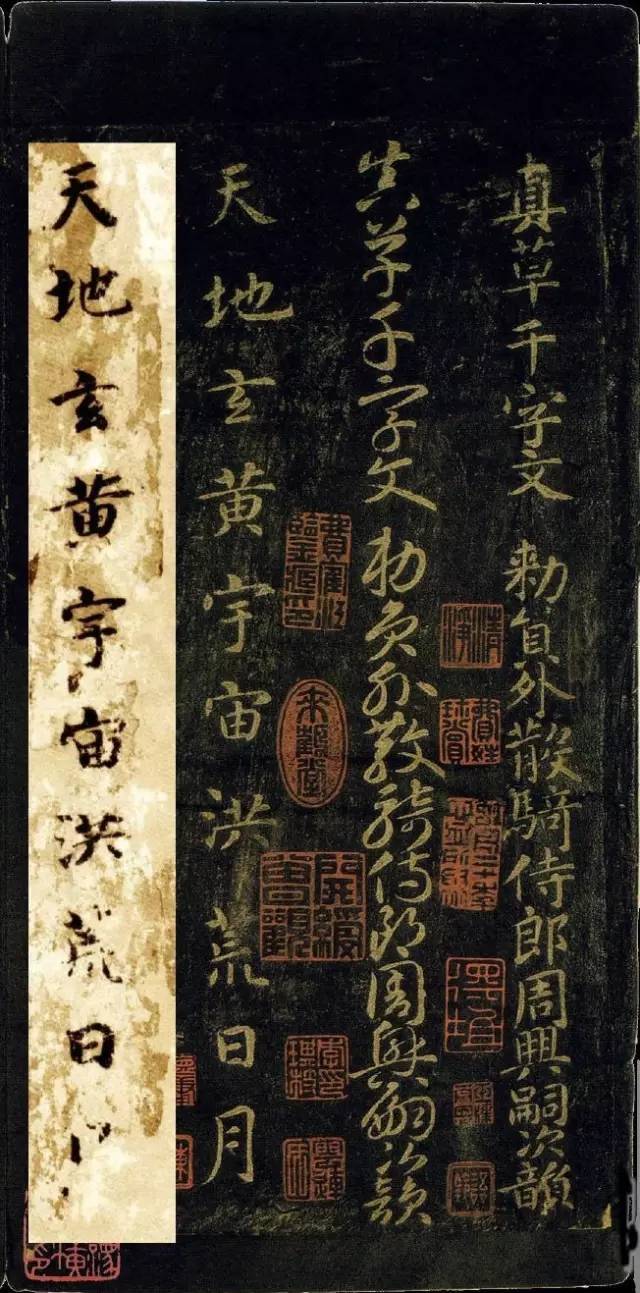 真草千字文 勅員外散騎侍郎周興嗣次韻
真草千字文勅員外散騎侍郎周興嗣次韻
天地玄黃宇宙洪荒日月
天地玄黃宇宙洪荒日